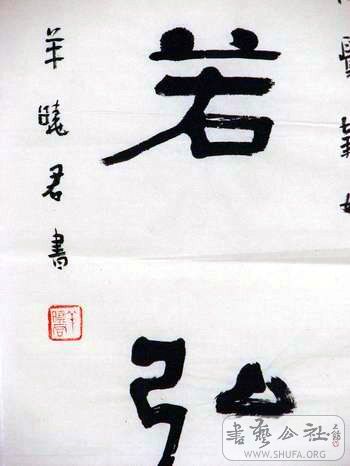 若弘
羊曉君書
書藝公社
WWW.SHUFA.ORG